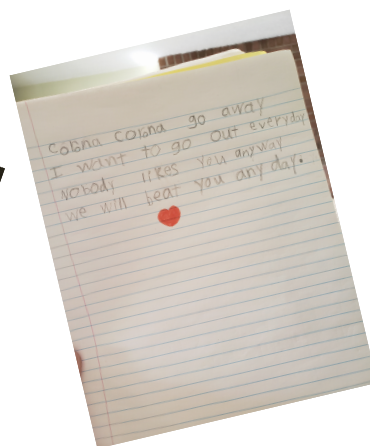 Corona Corona go away
I want to go out everyday
Nobody likes you anyway
we will beat you any day.